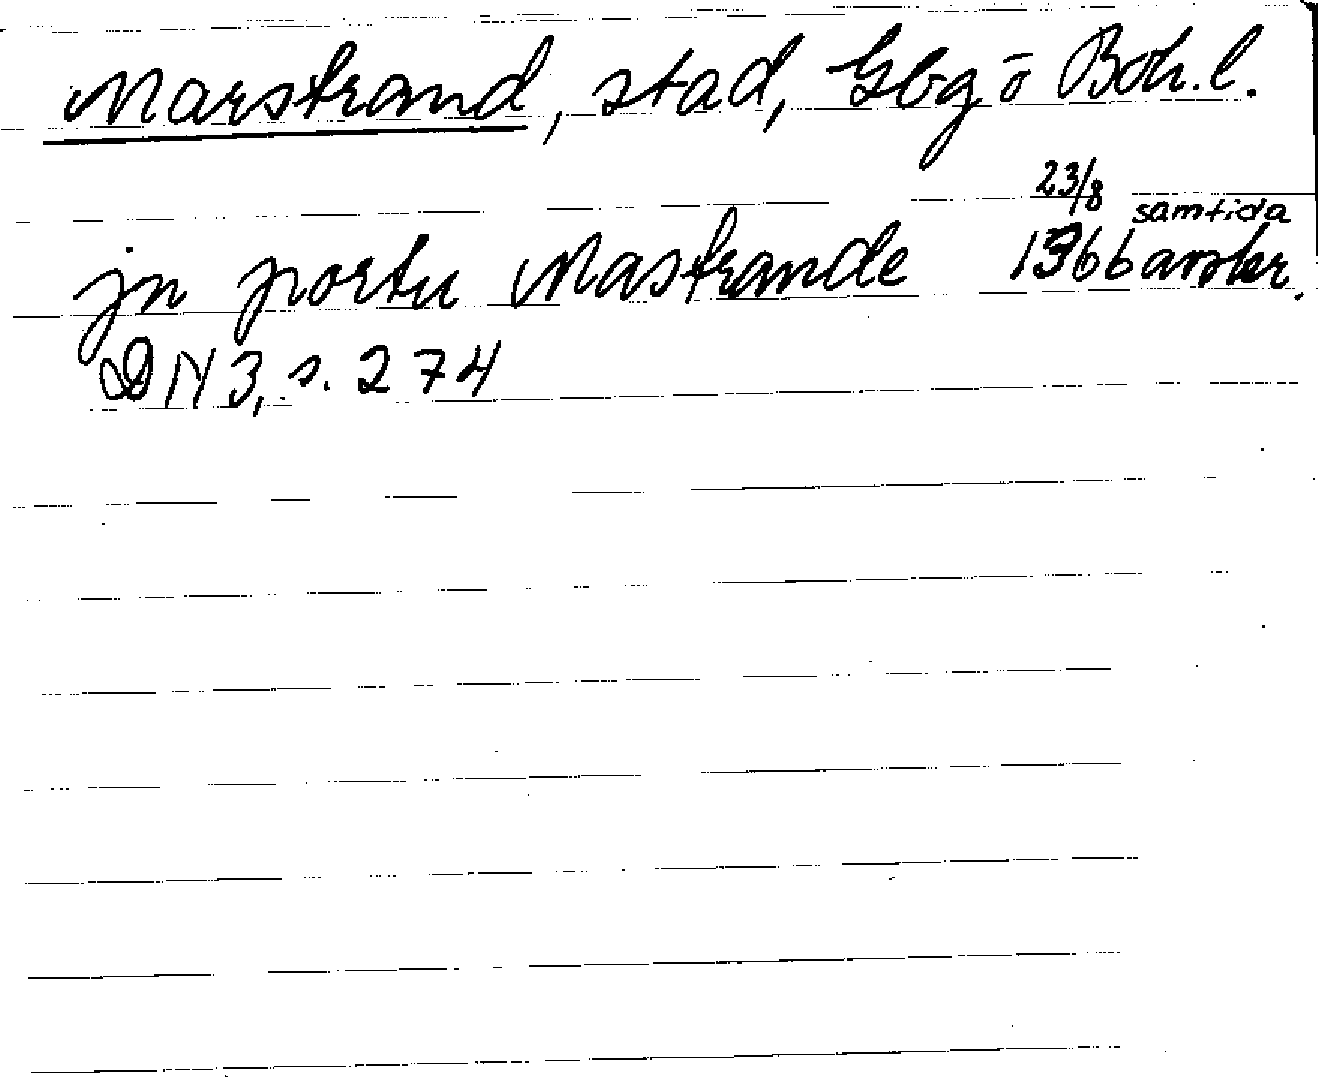 Marstrand, stad, Gbg o Boh.l.
jn portu Mastrande 23/8 1366 samtida avskr.
DN 3, s. 274